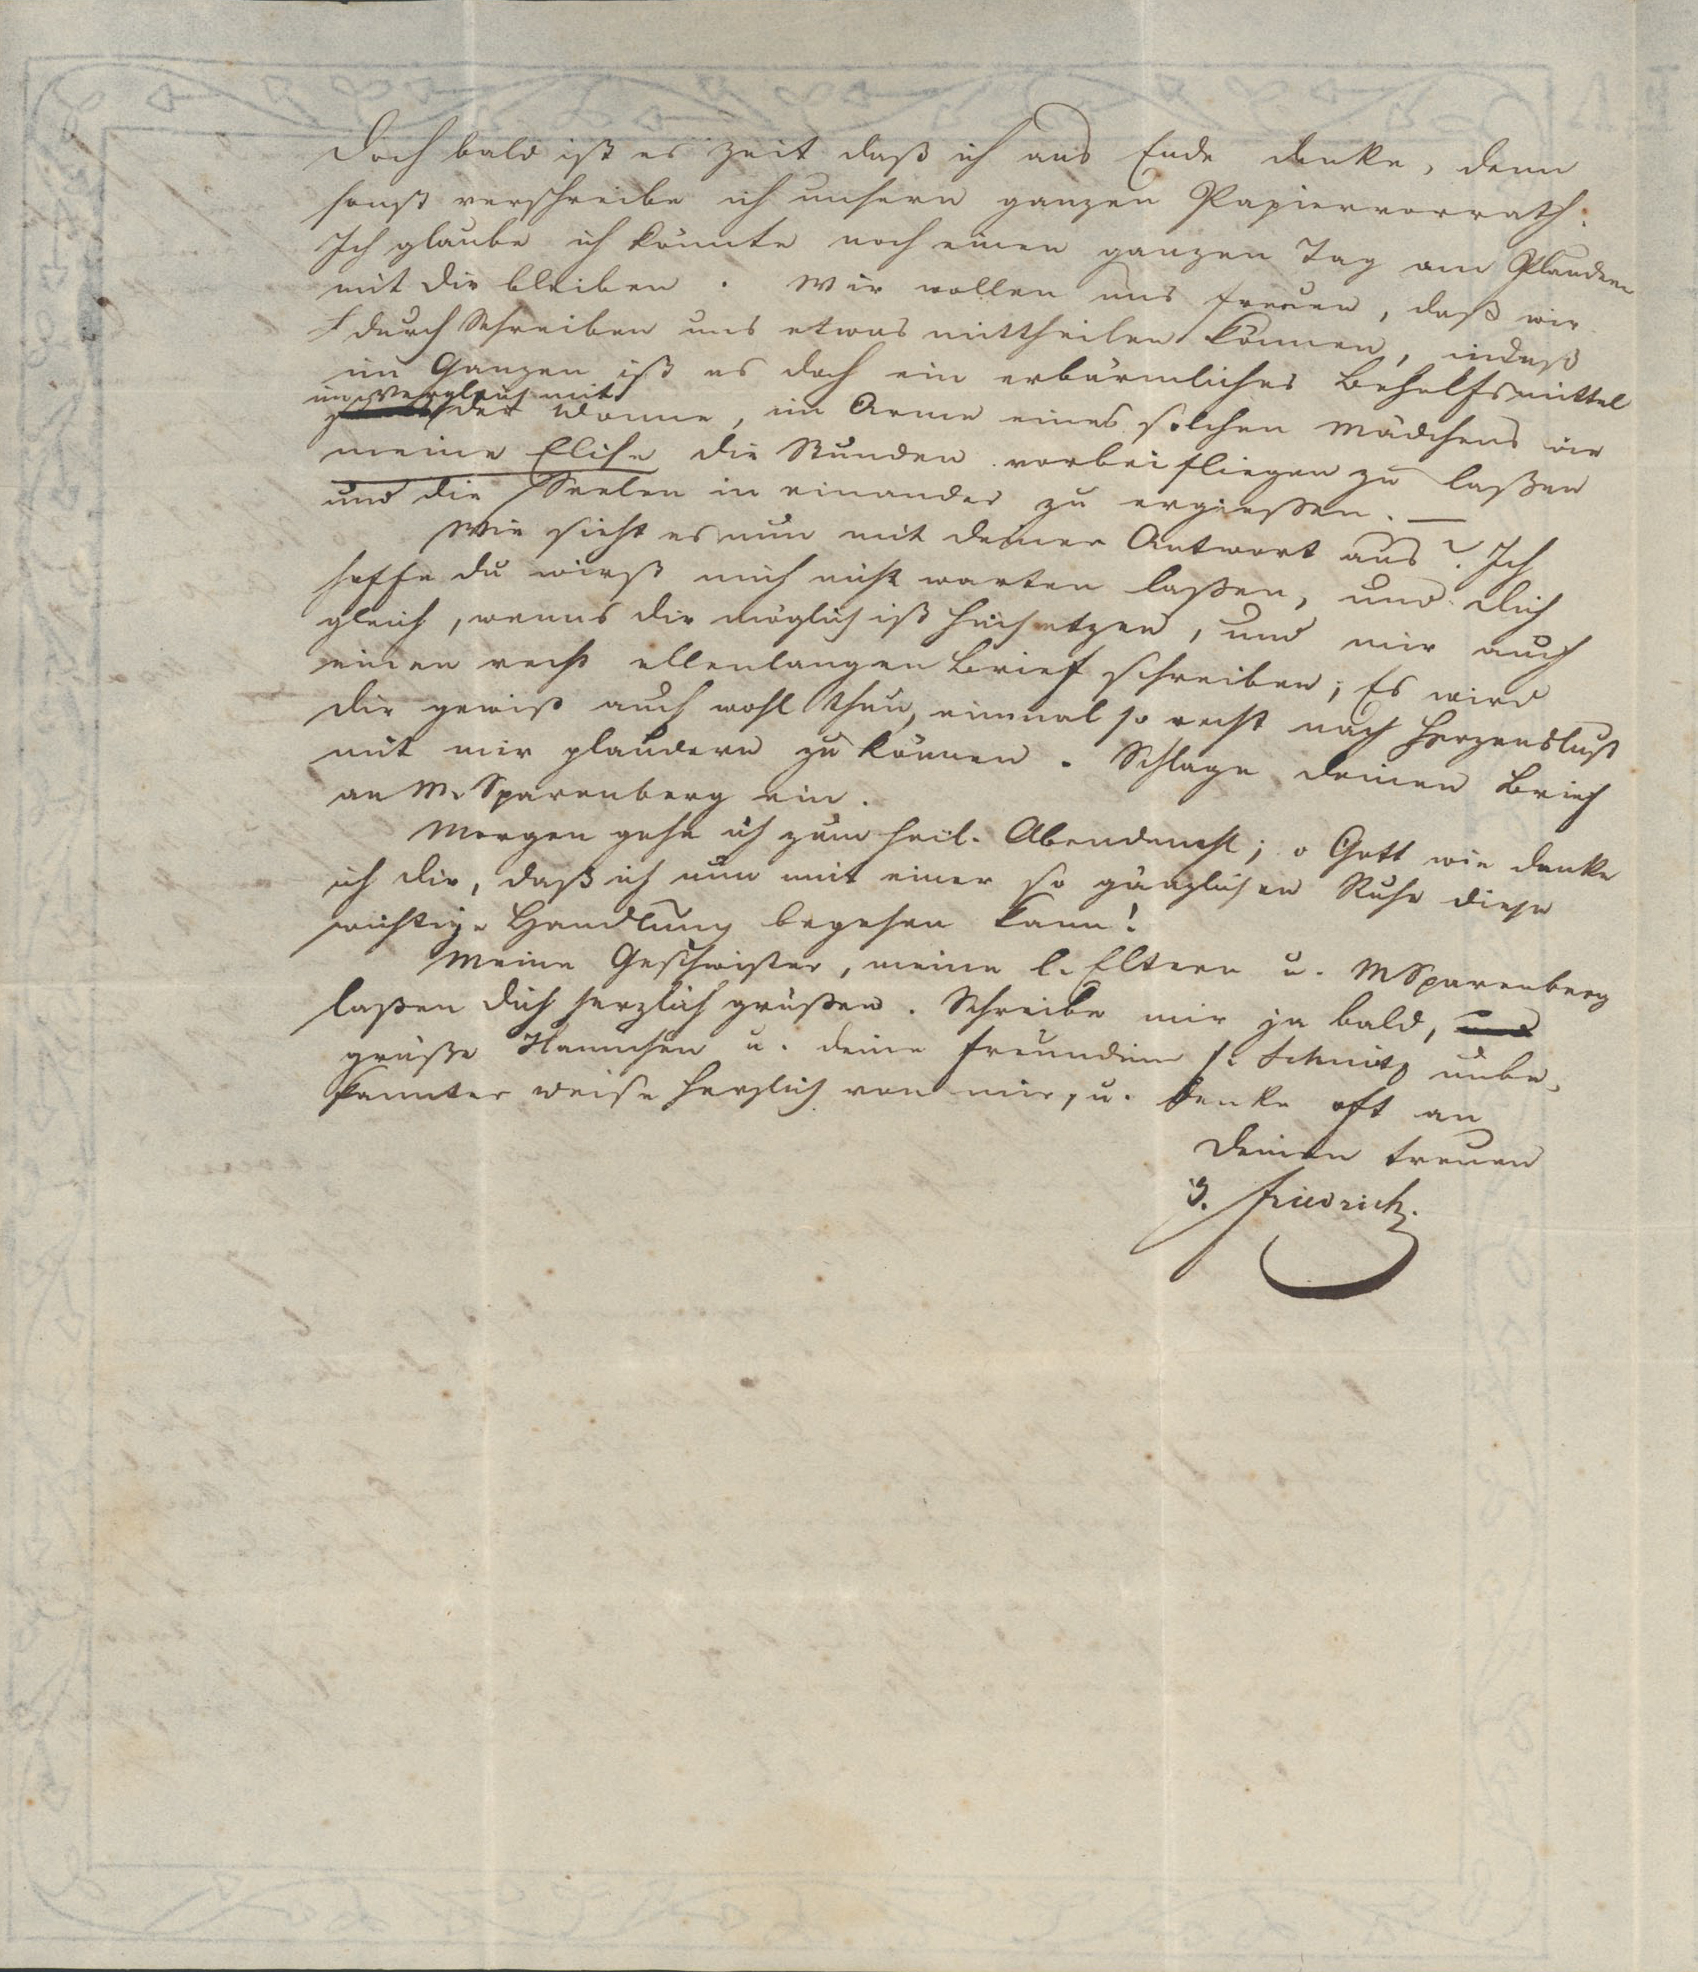 Doch bald ist es Zeit daß ich ans Ende denke, denn
sonst verschreibe ich unsern ganzen Papiervorrath.
Ich glaube ich könnte noch einen ganzen Tag am Plaudern
mit dir bleiben. Wir wollen uns freuen, daß wir
durch Schreiben uns etwas mittheilen können, indeß
im Ganzen ist es doch ein erbärmliches Behelfsmittel
im Vergleich mit
der Wonne, im Arme eines solchen Mädchens wie
meine Elise die Stunden vorbeifliegen zu laßen
und die Seelen in einander zu ergießen. —
Wie sieht es nun mit deiner Antwort aus? Ich
hoffe du wirst mich nicht warten laßen, und dich
gleich, wenns dir möglich ist hinsetzen, und mir auch
einen recht ellenlangen Brief schreiben; Es wird
dir gewiß auch wohl thun, einmal so recht nach Herzenslust
mit mir plaudern zu können. Schlage deinen Brief
an M. Sparenberg ein.
Morgen gehe ich zum heil. Abendmahl; o Gott wie danke
ich dir, daß ich nun mit einer so gänzlichen Ruhe diese
wichtige Handlung begehen kann!
Meine Geschwister, meine l. Eltern u. M Sparenberg
laßen dich herzlich grüßen. Schreibe mir ja bald,
grüße Hannchen u. deine Freundinn Schmitz unbe-
kannter weise herzlich von mir, u. denke oft an
Deinen treuen
Friedrich.